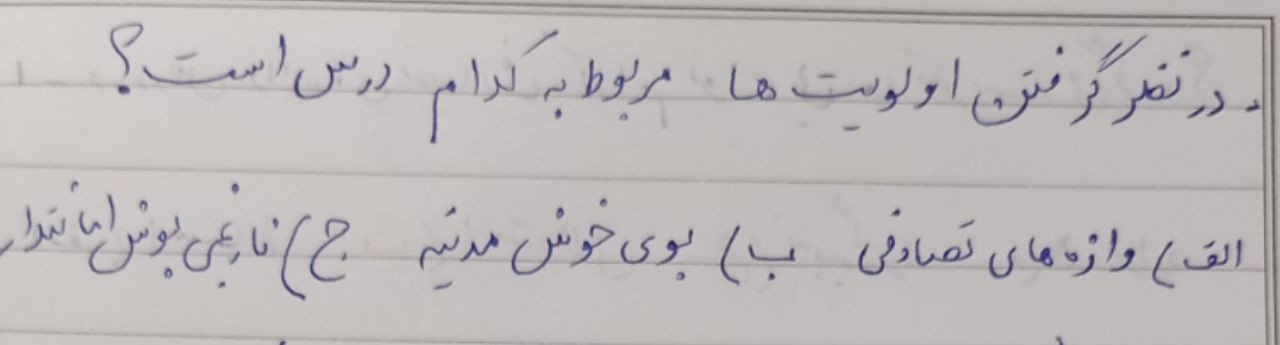 . در نظر گرفتن اولویت ها مربوط به کدام درس است؟
الف) واژه های تصادفی ب) بوی خوش مدینه ج) نارنجی پوش امانتدار